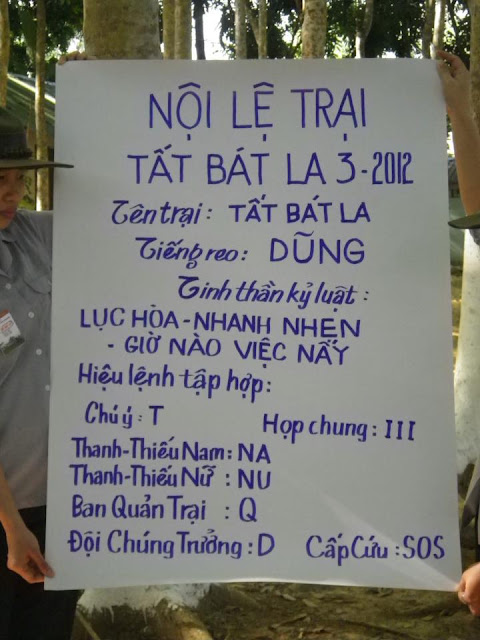 NỘI LỆ TRẠI
TẤT BÁT LA 3-2012
Tên trại: TẤT BÁT LA
Tiếng reo: DŨNG
Tinh thần kỷ luật:
LỤC HÒA-NHANH NHẸN
- GIỜ NÀO VIỆC NẤY
Hiệu lệnh tập hợp:
Chú ý: T Họp chung: III
Thanh-Thiếu Nam: NA
Thanh-Thiếu Nữ : NU
Ban Quản Trại : Q
Đội Chúng Trưởng: D Cấp Cứu: SOS